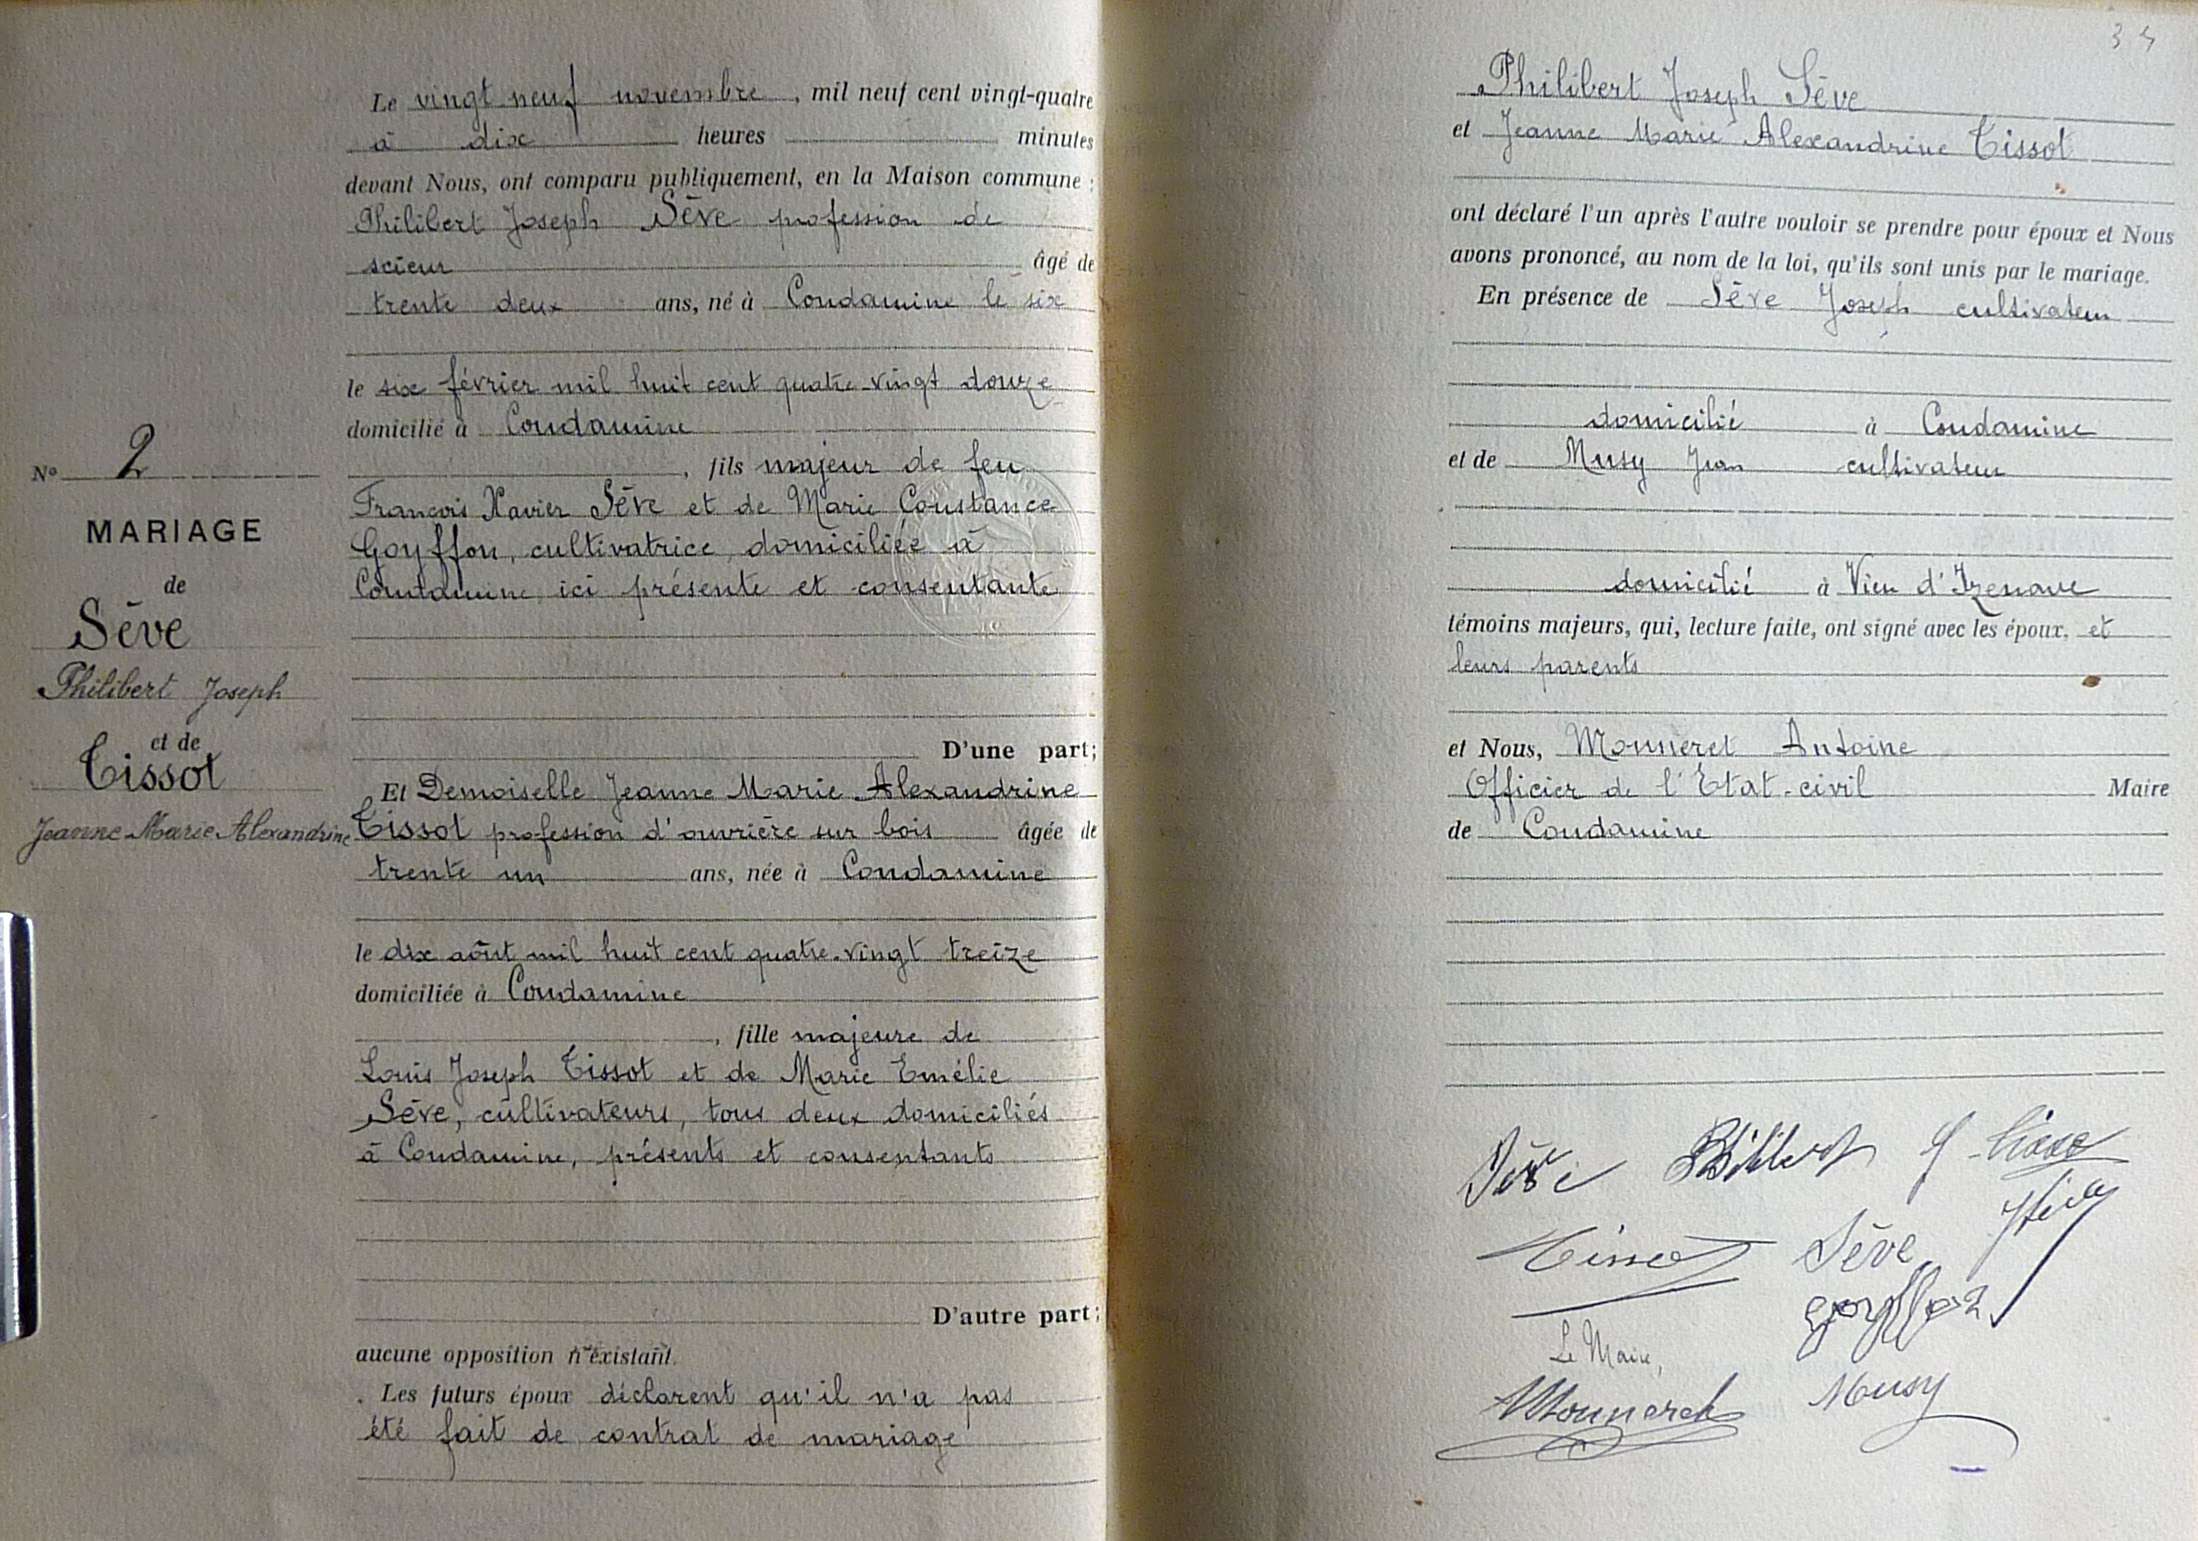 Le vingt neuf novembre, mil neuf cent vingt-quatre
à dix heures minutes
devant Nous, ont comparu publiquement, en la Maison commune :
Philibert Joseph Sève profession de
scieur âgé de
trente deux ans, né à Condamine le six
le six février mil huit cent quatre-vingt douze
domicilié à Condamine
, fils majeur de feu
François Xavier Sève et de Marie Constance
Goyffon, cultivatrice, domiciliée à
Condamine, ici présente et consentante
D'une part;
Et Demoiselle Jeanne Marie Alexandrine
Tissot profession d'ouvrière sur bois âgée de
trente un ans, née à Condamine
le dix août mil huit cent quatre-vingt treize
domiciliée à Condamine
, fille majeure de
Louis Joseph Tissot et de Marie Emélie
Sève, cultivateurs, tous deux domiciliés
à Condamine, présents et consentants
D'autre part;
aucune opposition n'existant.
Les futurs époux déclarent qu'il n'a pas
été fait de contrat de mariage
N° 2
MARIAGE
de
Sève
Philibert Joseph
et de
Tissot
Jeanne Marie Alexandrine
34
Philibert Joseph Sève
et Jeanne Marie Alexandrine Tissot
ont déclaré l'un après l'autre vouloir se prendre pour époux et Nous
avons prononcé, au nom de la loi, qu'ils sont unis par le mariage.
En présence de Sève Joseph cultivateur
domicilié à Condamine
et de Musy Jean cultivateur
domicilié à Vieu d'Izenave
témoins majeurs, qui, lecture faite, ont signé avec les époux, et
leurs parents
et Nous, Monneret Antoine
Officier de l'Etat-civil Maire
de Condamine
Sève Philibert J Tissot
Tissot Sève
Goyffon
Le Maire,
Monneret Musy